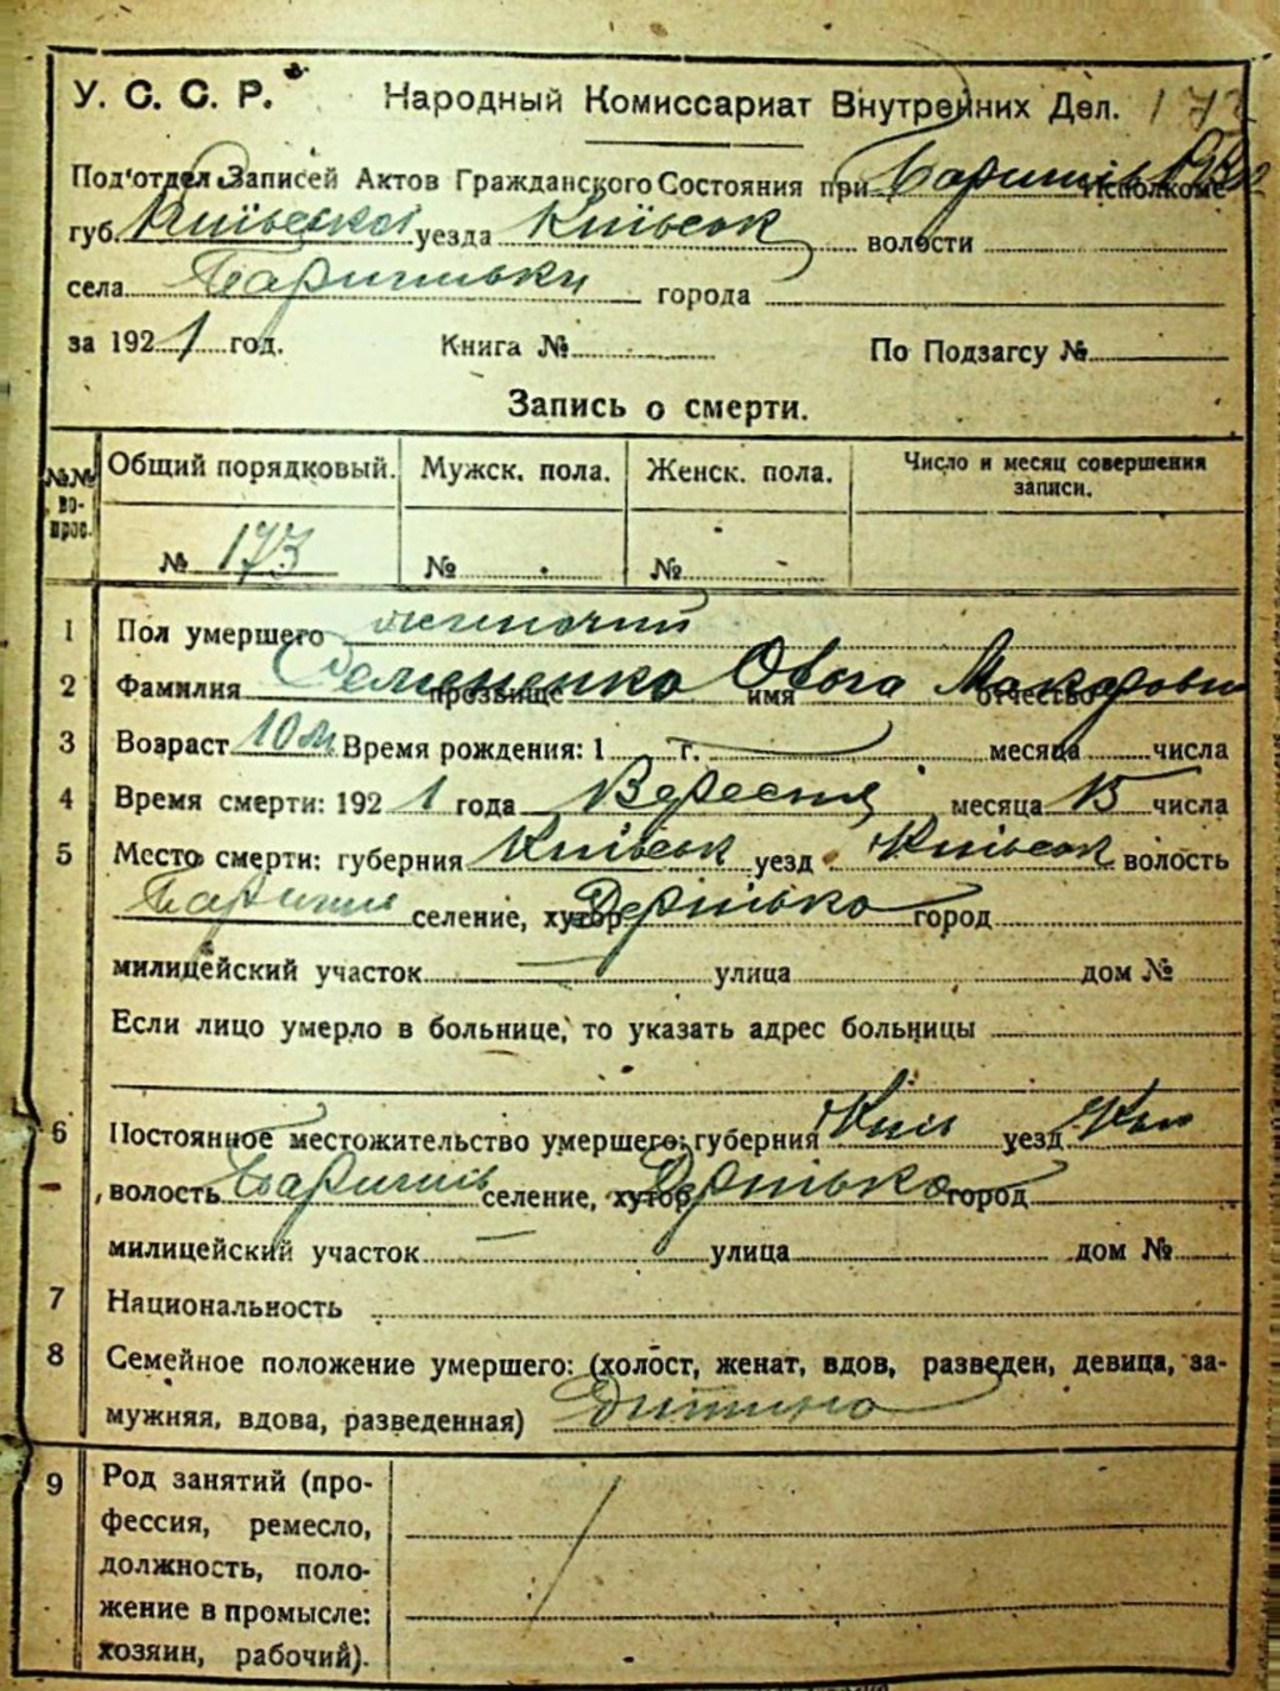 У. С. С. Р. Народный Комиссариат Внутренних Дел. 173
Под'отдел Записей Актов Гражданского Состояния при Баришів Исполкоме
губ. Київської уезда Київськ волости
села Баришівки города
за 1921 год. Книга № По Подзагсу №
Запись о смерти.
№№ вопрос. Общий порядковый. Мужск. пола. Женск. пола. Число и месяц совершения записи.
№ 173 № №
1 Пол умершего жиночий
2 Фамилия Семененко прозвище имя отчество Макаровн
3 Возраст 10 м Время рождения: 1 г. месяца числа
4 Время смерти: 1921 года Вересня месяца 15 числа
5 Место смерти: губерния Київськ уезд Київськ волость
Баришів селение, хутор город
милицейский участок улица дом №
Если лицо умерло в больнице, то указать адрес больницы
6 Постоянное местожительство умершего: губерния Київ уезд Київ
волость Баришів селение, хутор город
милицейский участок улица дом №
7 Национальность
8 Семейное положение умершего: (холост, женат, вдов, разведен, девица, за-
мужняя, вдова, разведенная) Дитина
9 Род занятий (про-
фессия, ремесло,
должность, поло-
жение в промысле:
хозяин, рабочий).